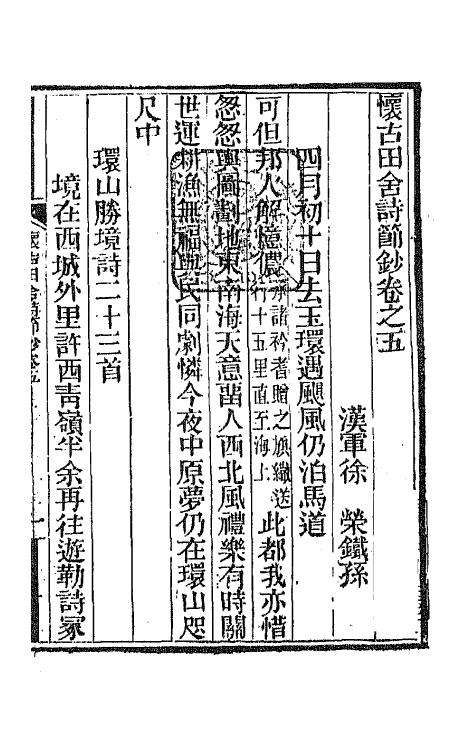 懷古田舍詩節鈔卷之五
漢軍徐　榮鐵孫
四月初十日去玉環遇颶風仍泊馬道
可但邦人解憶儂承諸衿耆贈之旗繖送行十五里直至海上此都我亦惜
怱怱輿圖劃地東南海天意凿人西北風禮樂有時關
世運耕漁無福與民同劇憐今夜中原夢仍在環山咫
尺中
環山勝境詩二十三首
境在西城外里許西靑嶺半余再往遊勒詩冢
懷古田舍詩節鈔卷五
一